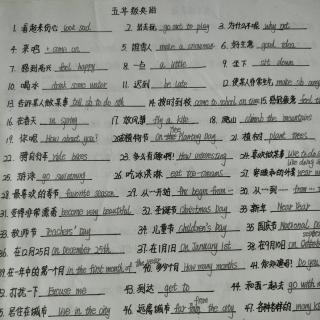 五年级英语
1. 看起来伤心 look sad 2. 出去玩 go out to play 3. 为什么不呢 why not
4. 来吧 come on 5. 堆雪人 make a snowman 6. 好主意 good idea
7. 感到高兴 feel happy 8. 一点 a little 9. 坐下 sit down
10. 喝水 drink some water 11. 迟到 be late 12.
13. 告诉某人做某事 tell sb to do sth 14. 按时到校 come to school on time 15.
16. 在春天 in spring 17. 放风筝 fly a kite 18. 爬山 climb the mountains
19. 你呢 How about you? 20. 在植树节 On the Planting Day 21. 植树 plant trees
22. 骑自行车 ride bikes 23. 多么有趣啊! How interesting 24. 喜欢做某事 like to do
25. 游泳 go swimming 26. 吃冰淇淋 eat ice-creams 27.
28. 最喜欢的季节 favorite season 29. 从…开始 begin from 30. 从…到… from
31. 变得非常漂亮 become very beautiful 32. 圣诞节 Christmas Day 33. 新年 New Year
33. 教师节 Teachers' Day 34. 儿童节 children's Day 35. 国庆节 National
36. 在12月25日 On December 25th 37. 在1月1日 On January 1st 38.
39. 在一年中的第一个月 in the first month of the year 40. 多少个月 How many months 41.
42. 打扰一下 Excuse me 43. 到达 get to 44.
45. 居住在城市 live in the city 46. 远离城市 far from the city 47.